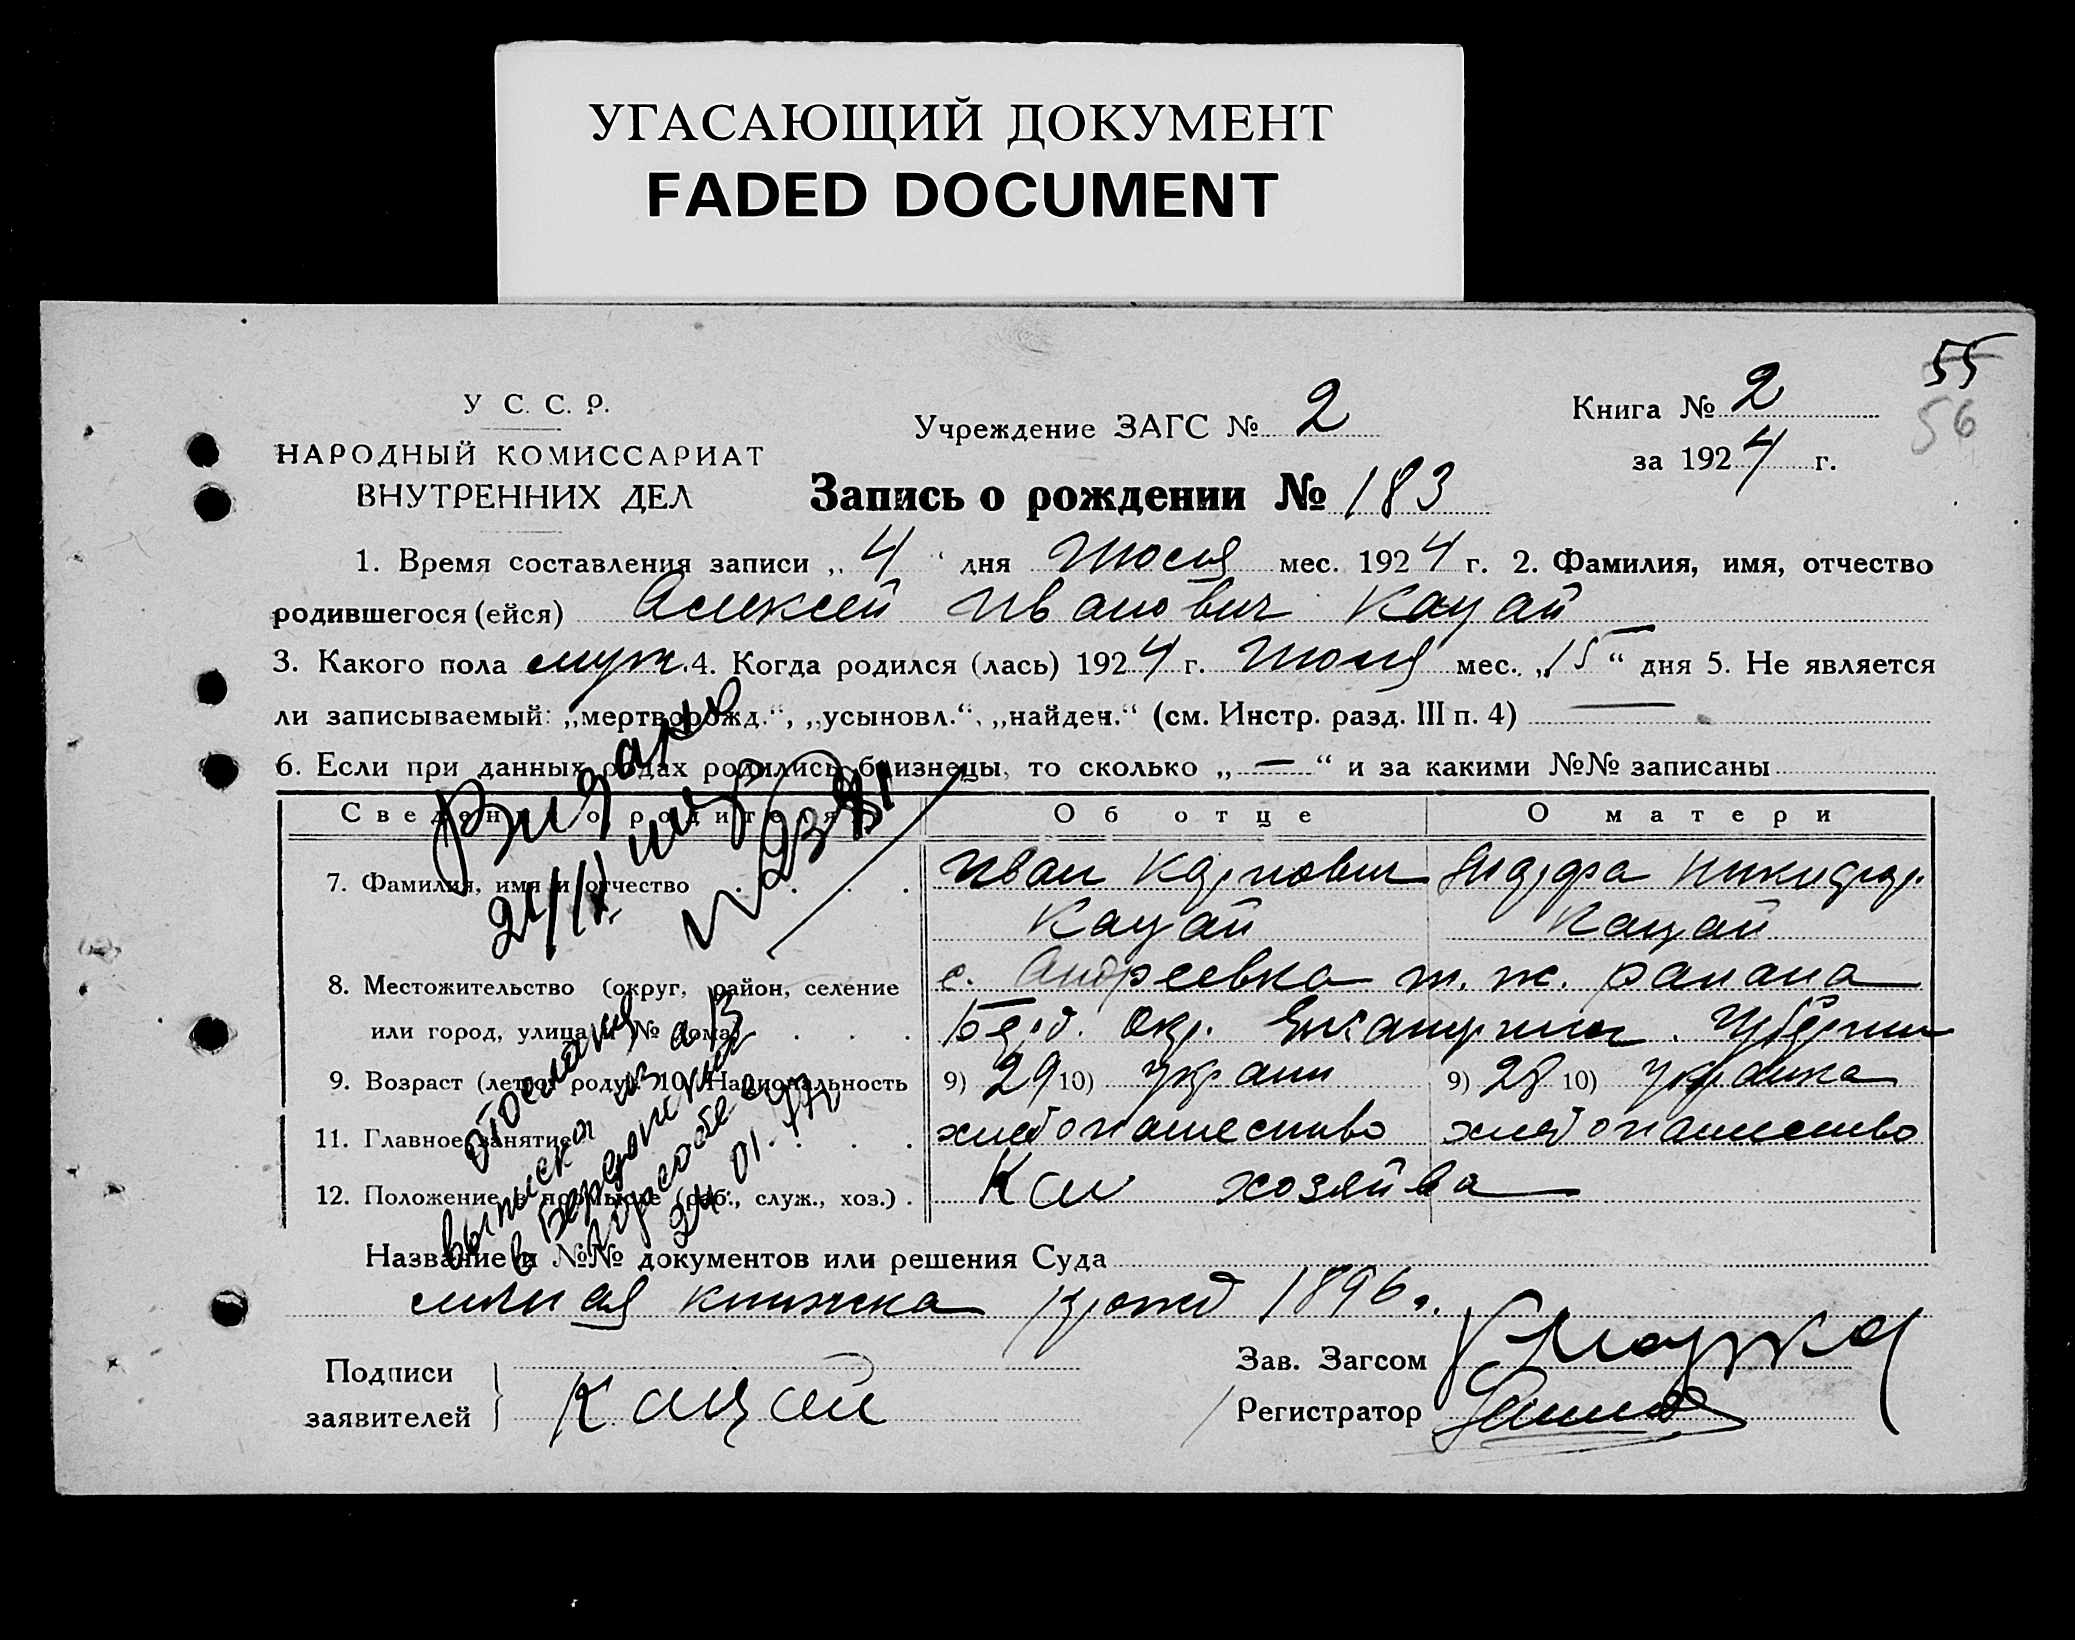 УГАСАЮЩИЙ ДОКУМЕНТ
FADED DOCUMENT
55
56
У С. С. Р.
НАРОДНЫЙ КОМИССАРИАТ
ВНУТРЕННИХ ДЕЛ
Учреждение ЗАГС № 2
Книга № 2
за 1924 г.
Запись о рождении № 183
1. Время составления записи „ 4 " дня Июля мес. 1924 г. 2. Фамилия, имя, отчество
родившегося (ейся) Алексей Иванович Кацай
3. Какого пола муж. 4. Когда родился (лась) 1924 г. Июля мес. „15“ дня 5. Не является
ли записываемый: „мертворожд.“, „усыновл.“, „найден.“ (см. Инстр. разд. III п. 4) —
6. Если при данных родах родились близнецы, то сколько „ — “ и за какими №№ записаны
Сведения о родителях Об отце О матери
7. Фамилия, имя и отчество
Иван Карпович
Кацай
Никифор.
Кацай
8. Местожительство (округ, район, селение
или город, улица и № дома)
с. Андреевка
Берд. Окр. Губернии
9. Возраст (лет от роду) 10. Национальность
9) 29 10) Украин 9) 28 10) Украинка
11. Главное занятие
хлебопашество хлебопашество
12. Положение в промысле (раб., служ., хоз.)
хозяйва
Видано
24/IX
отослана
выписка из а/з
в Бердянский
24 01.
Название и №№ документов или решения Суда
личная книжка рожд 1896 г.
Подписи
заявителей } Кацай
Зав. Загсом
Регистратор